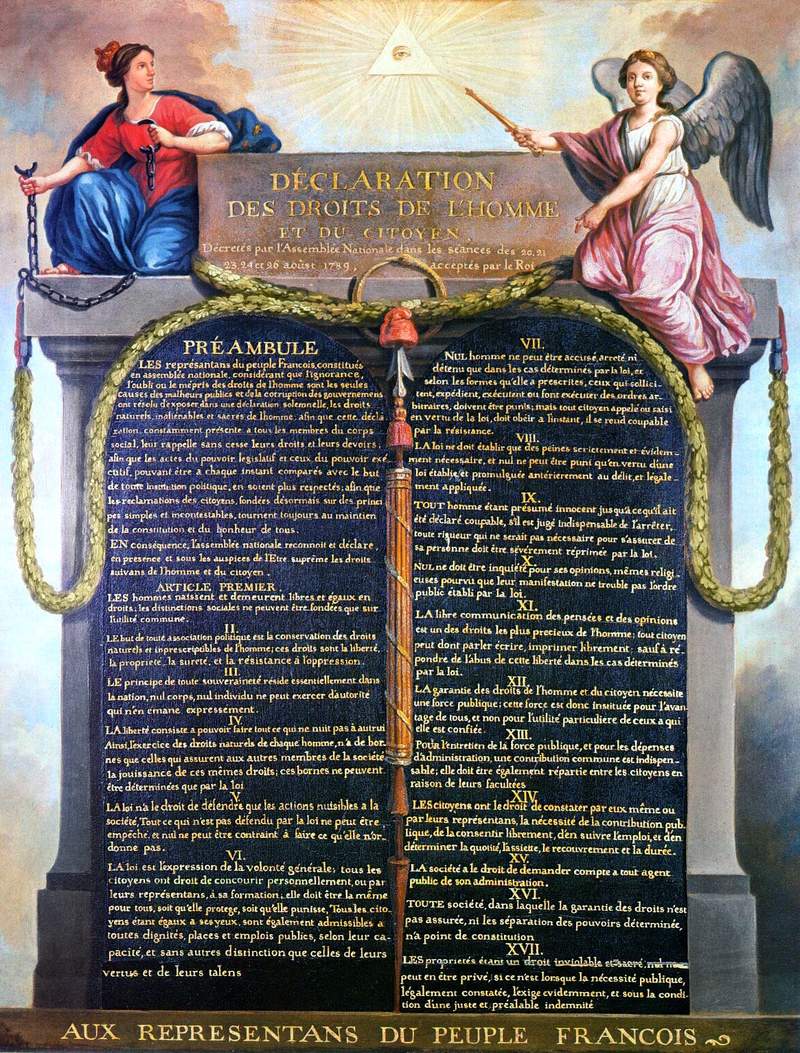 DÉCLARATION
DES DROITS DE L'HOMME
ET DU CITOYEN,
Décretés par l'Assemblée Nationale dans les séances des 20, 21
23, 24 et 26 aoûst 1789, acceptés par le Roi
PRÉAMBULE
LES représantans du peuple Francois, constitués
en assemblée nationale, considérant que l'ignorance,
l'oubli ou le mépris des droits de l'homme sont les seules
causes des malheurs publics et de la corruption des gouvernemens
ont résolu d'exposer dans une déclaration solemnelle, les droits
naturels, inaliénables et sacrés de l'homme; afin que cette décla-
ration, constamment présente a tous les membres du corps
social, leur rappelle sans cesse leurs droits et leurs devoirs;
afin que les actes du pouvoir legislatif et ceux du pouvoir exé-
cutif, pouvant être a chaque instant comparés avec le but
de toute institution politique, en soient plus respectés; afin que
les reclamations des citoyens, fondées désormais sur des princi
pes simples et incontestables, tournent toujours au maintien
de la constitution et du bonheur de tous.
EN conséquence, l'assemblée nationale reconnoit et déclare,
en presence et sous les auspices de l'Etre suprême les droits
suivans de l'homme et du citoyen.
ARTICLE PREMIER.
LES hommes naissent et demeurent libres et égaux en
droits; les distinctions sociales ne peuvent être fondées que sur
l'utilité commune.
II.
LE but de toute association politique est la conservation des droits
naturels et inprescriptibles de l'homme; ces droits sont la liberté,
la proprieté, la sureté, et la résistance à l'oppression.
III.
LE principe de toute souveraineté réside essentiellement dans
la nation, nul corps, nul individu ne peut exercer d'autorité
qui n'en émane expressément.
IV.
LA liberté consiste a pouvoir faire tout ce qui ne nuit pas à autrui
Ainsi, l'exercice des droits naturels de chaque homme, n'a de bor-
nes que celles qui assurent aux autres membres de la société
la jouissance de ces mêmes droits; ces bornes ne peuvent
être déterminées que par la loi
V.
LA loi n'a le droit de défendre que les actions nuisibles à la
société. Tout ce qui n'est pas défendu par la loi ne peut être
empêché, et nul ne peut être contraint à faire ce qu'elle n'or-
donne pas.
VI.
LA loi est l'expression de la volonté générale; tous les
citoyens ont droit de concourir personnellement, ou par
leurs représentans, à sa formation; elle doit être la même
pour tous, soit qu'elle protege, soit qu'elle punisse. Tous les cito-
yens étant égaux a ses yeux, sont également admissibles a
toutes dignités, places et emplois publics, selon leur ca-
pacité, et sans autres distinction que celles de leurs
vertus et de leurs talens
VII.
NUL homme ne peut être accusé, arreté ni
détenu que dans les cas déterminés par la loi, et
selon les formes qu'elle a prescrites, ceux qui sollici-
tent, expédient, exécutent ou font exécuter des ordres ar-
bitraires, doivent être punis; mais tout citoyen appelé ou saisi
en vertu de la loi, doit obéir a l'instant, il se rend coupable
par la résistance.
VIII.
LA loi ne doit établir que des peines strictement et évidem-
ment nécessaire, et nul ne peut être puni qu'en vertu d'une
loi établie, et promulguée antérierement au délit, et légale-
ment appliquée.
IX.
TOUT homme étant présumé innocent jusqu'a ce qu'il ait
été déclaré coupable, s'il est jugé indispensable de l'arrêter,
toute rigueur qui ne serait pas nécessaire pour s'assurer de
sa personne doit être sévèrement réprimée par la loi.
X.
NUL ne doit être inquiété pour ses opinions, mêmes religi-
euses pourvu que leur manifestation ne trouble pas l'ordre
public établi par la loi.
XI.
LA libre communication des pensées et des opinions
est un des droits les plus precieux de l'homme; tout citoyen
peut dont parler écrire, imprimer librement; sauf à ré-
pondre de l'abus de cette liberté dans les cas déterminés
par la loi.
XII.
LA garantie des droits de l'homme et du citoyen nécessite
une force publique; cette force est donc instituée pour l'avan-
tage de tous, et non pour l'utilité particuliere de ceux a qui
elle est confiée.
XIII.
POUR l'entretien de la force publique, et pour les dépenses
d'administration, une contribution commune est indispen-
sable; elle doit être également répartie entre les citoyens en
raison de leurs facultées
XIV.
LES citoyens ont le droit de constater par eux même ou
par leurs représentans, la nécessité de la contribution pub-
lique, de la consentir librement, d'en suivre l'emploi, et d'en
déterminer la quotité, l'assiette, le recouvrement et la durée.
XV.
LA société a le droit de demander compte a tout agent
public de son administration.
XVI.
TOUTE société, dans laquelle la garantie des droits n'est
pas assurée, ni les séparation des pouvoirs déterminée,
n'a point de constitution
XVII.
LES proprietés étant un droit inviolable et sacré, nul ne
peut en être privé, si ce n'est lorsque la nécessité publique,
légalement constatée, l'exige evidemment, et sous la condi-
tion d'une juste et préalable indemnité
AUX REPRESENTANS DU PEUPLE FRANCOIS